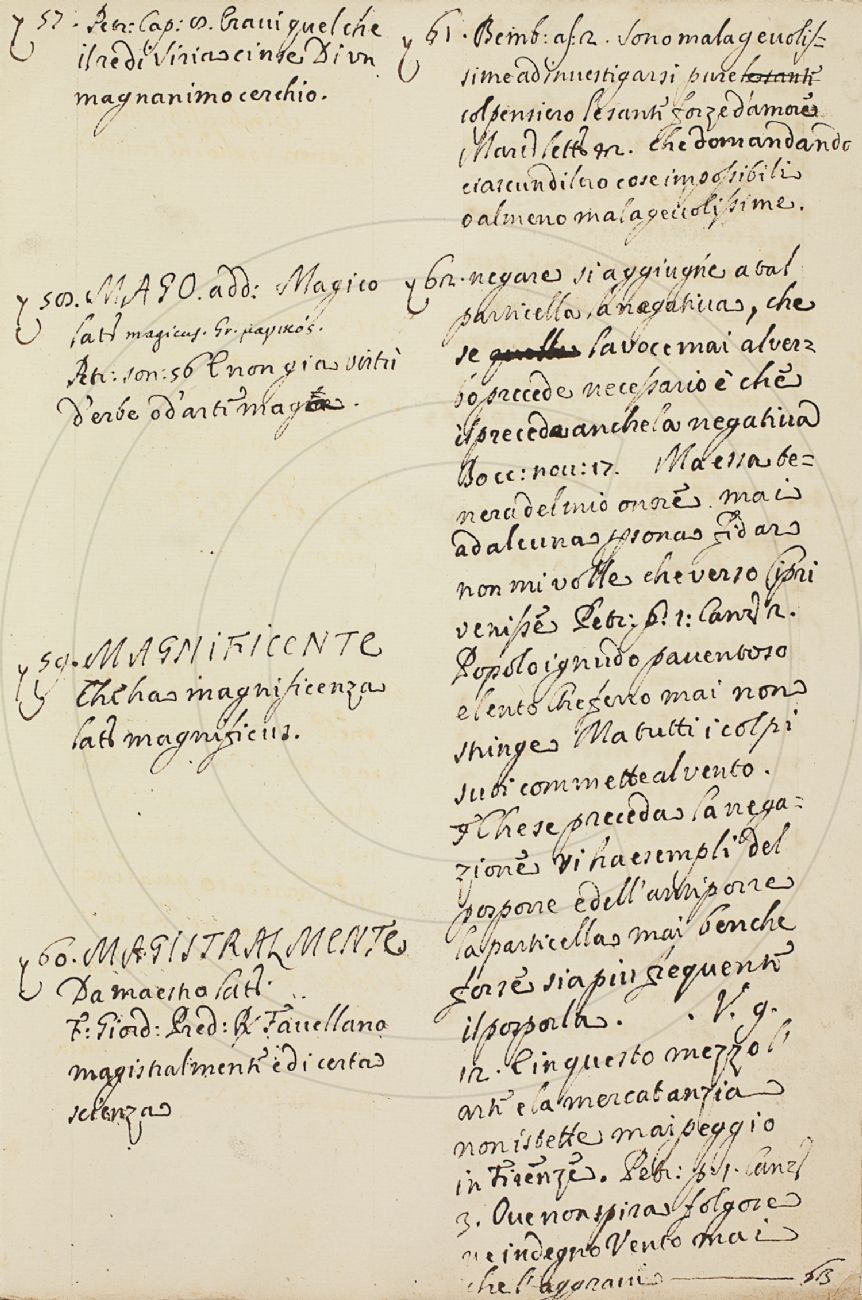 57. Petr: Cap: 8. Eravi quel che
il re di Siria cinse Di un
magnanimo cerchio.
58. MAGO. add: Magico
lat: magicus. Gr. μαγικός.
Petr: son: 56 E non già virtù
d'erbe o d'arte maga.
59. MAGNIFICENTE
Che ha magnificenza
lat: magnificus.
60. MAGISTRALMENTE
Da maestro lat:
F: Giord: Pred: R Favellano
magistralmente e di certa
scienza
61. Bemb: as: 2. Sono malagevolis-
sime ad investigarsi pure le sante
col pensiero le sante forze d'amore
lett: Che domandando
ciascun di loro cose impossibili
o almeno malagevolissime.
62. negare si aggiugne a tal
particella la negativa, che
se quella la voce mai al ver=
bo precede necessario è che
il preceda anche la negativa
Bocc: nov: 17. Ma essa te=
nera del mio onore mai
ad alcuna psona fidar
non mi volle che verso Cipri
venisse Petr: p: 1: Canz 2.
Popolo ignudo paventoso
e lento Che ferro mai non
stringe Ma tutti i colpi
suoi commette al vento.
Che se preceda la nega=
zione vi ha esempli del
posporre e dell'antiporre
la particella mai benche
forse sia piu frequente
il posporla. V. g.
12. E in questo mezzo l'
arte e la mercatanzia
non istette mai peggio
in Firenze. Petr: p: 1. Canz
3. Ove non spira folgore
ne indegno Vento mai
che l'aggravi 63